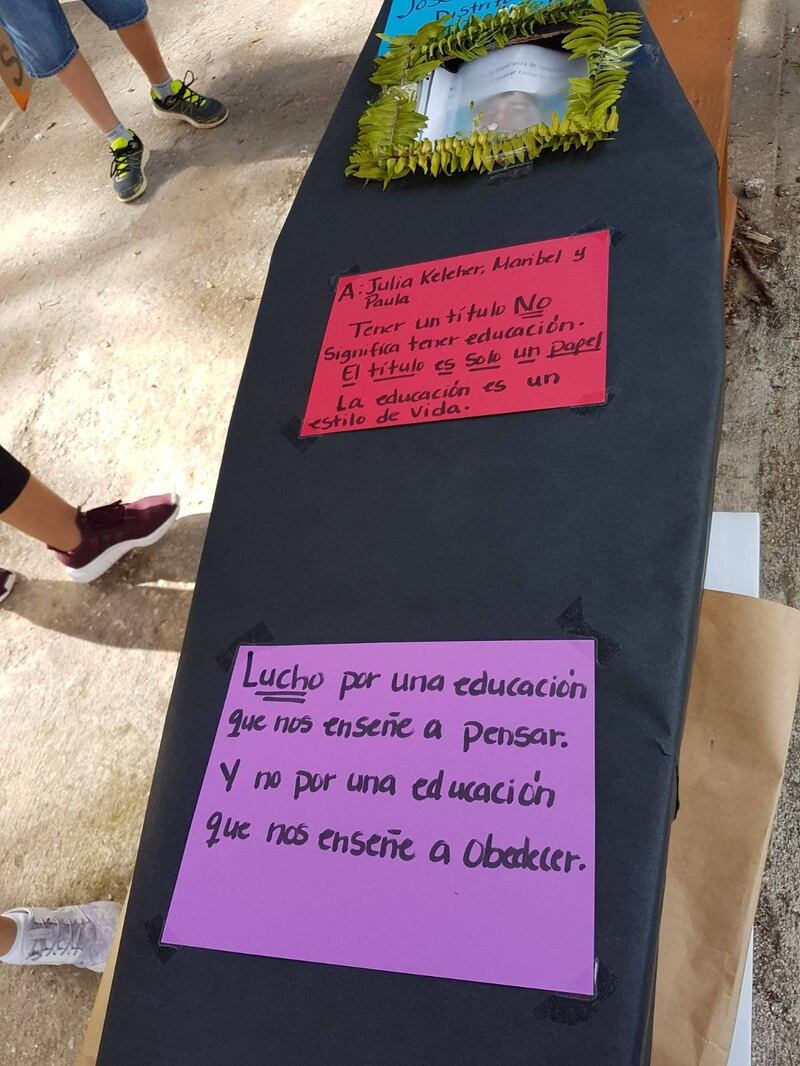 José
Distrito
esperanza de
cerrar
A: Julia Keleher, Maribel y
Paula
Tener un título NO
Significa tener educación.
El título es solo un papel
La educación es un
estilo de vida.
Lucho por una educación
que nos enseñe a pensar.
Y no por una educación
que nos enseñe a Obedecer.